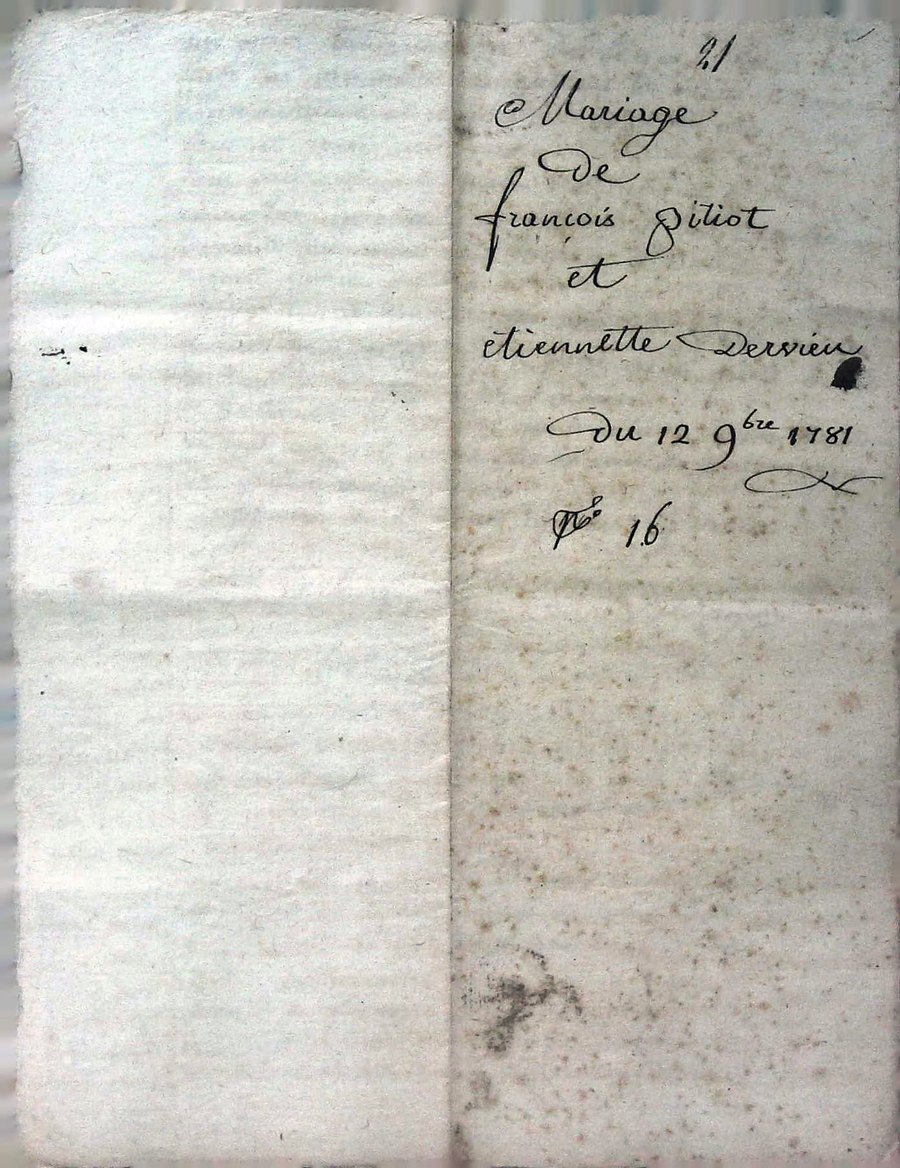 21
Mariage
De
françois pitiot
et
etiennette Dervieu
Du 12 9bre 1781
N° 16